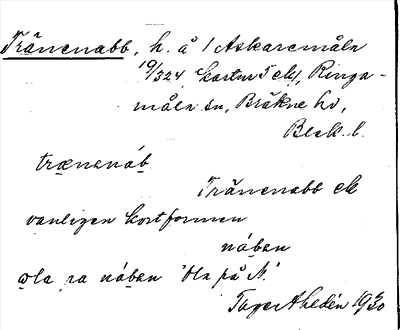 Tränenabb, h. å 1 Askaremåla
19/324 kartnr 5 ek, Ringa-
måla sn, Bräkne hd,
Blek. l.
trænanáb
Tränenabb ek
vanligen kortformen
nában
ola pa nában 'Ola på N.'
Tage Ahldén 1930